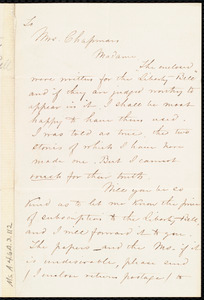 To
Mrs. Chapman
Madame
The enclosed
were written for the Liberty Bell
and if they are judged worthy to
appear in it, I shall be most
happy to have them used.
I was told as true, the two
stories of which I have now
made use. But I cannot
vouch for their truth.
Will you be so
kind as to let me know the price
of subscription to the Liberty Bell,
and I will forward it to you.
The papers and the Ms. if it
is undesirable, please send
(I enclose return postage) to
Ms. A.4.6A.2.112